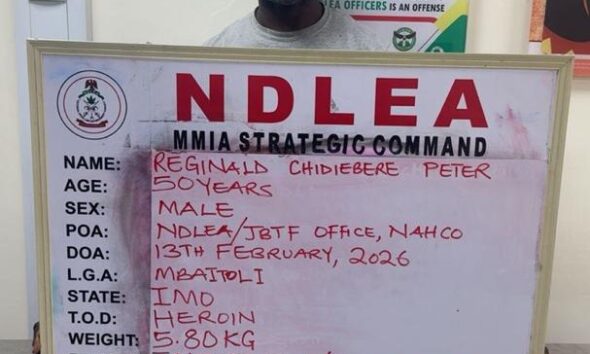 LEA OFFICERS IS AN OFFENSE
NDLEA
MMIA STRATEGIC COMMAND
NAME: REGINALD CHIDIEBERE PETER
AGE: 50 YEARS
SEX: MALE
POA: NDLEA/JBTF OFFICE, NAHCO
DOA: 13TH FEBRUARY, 2026
L.G.A: MBAITOLI
STATE: IMO
T.O.D: HEROIN
WEIGHT: 5.80KG